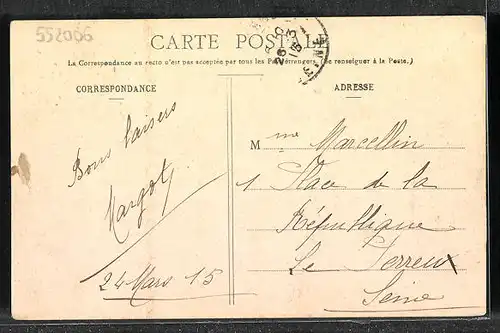 552006
CARTE POSTALE
La Correspondance au recto n'est pas acceptée par tous les Pays étrangers. (Se renseigner à la Poste.)
CORRESPONDANCE
Bons baisers
Margot
24 Mars 15
ADRESSE
Mme Marcellin
1 Place de la
République
Le Perreux
Seine